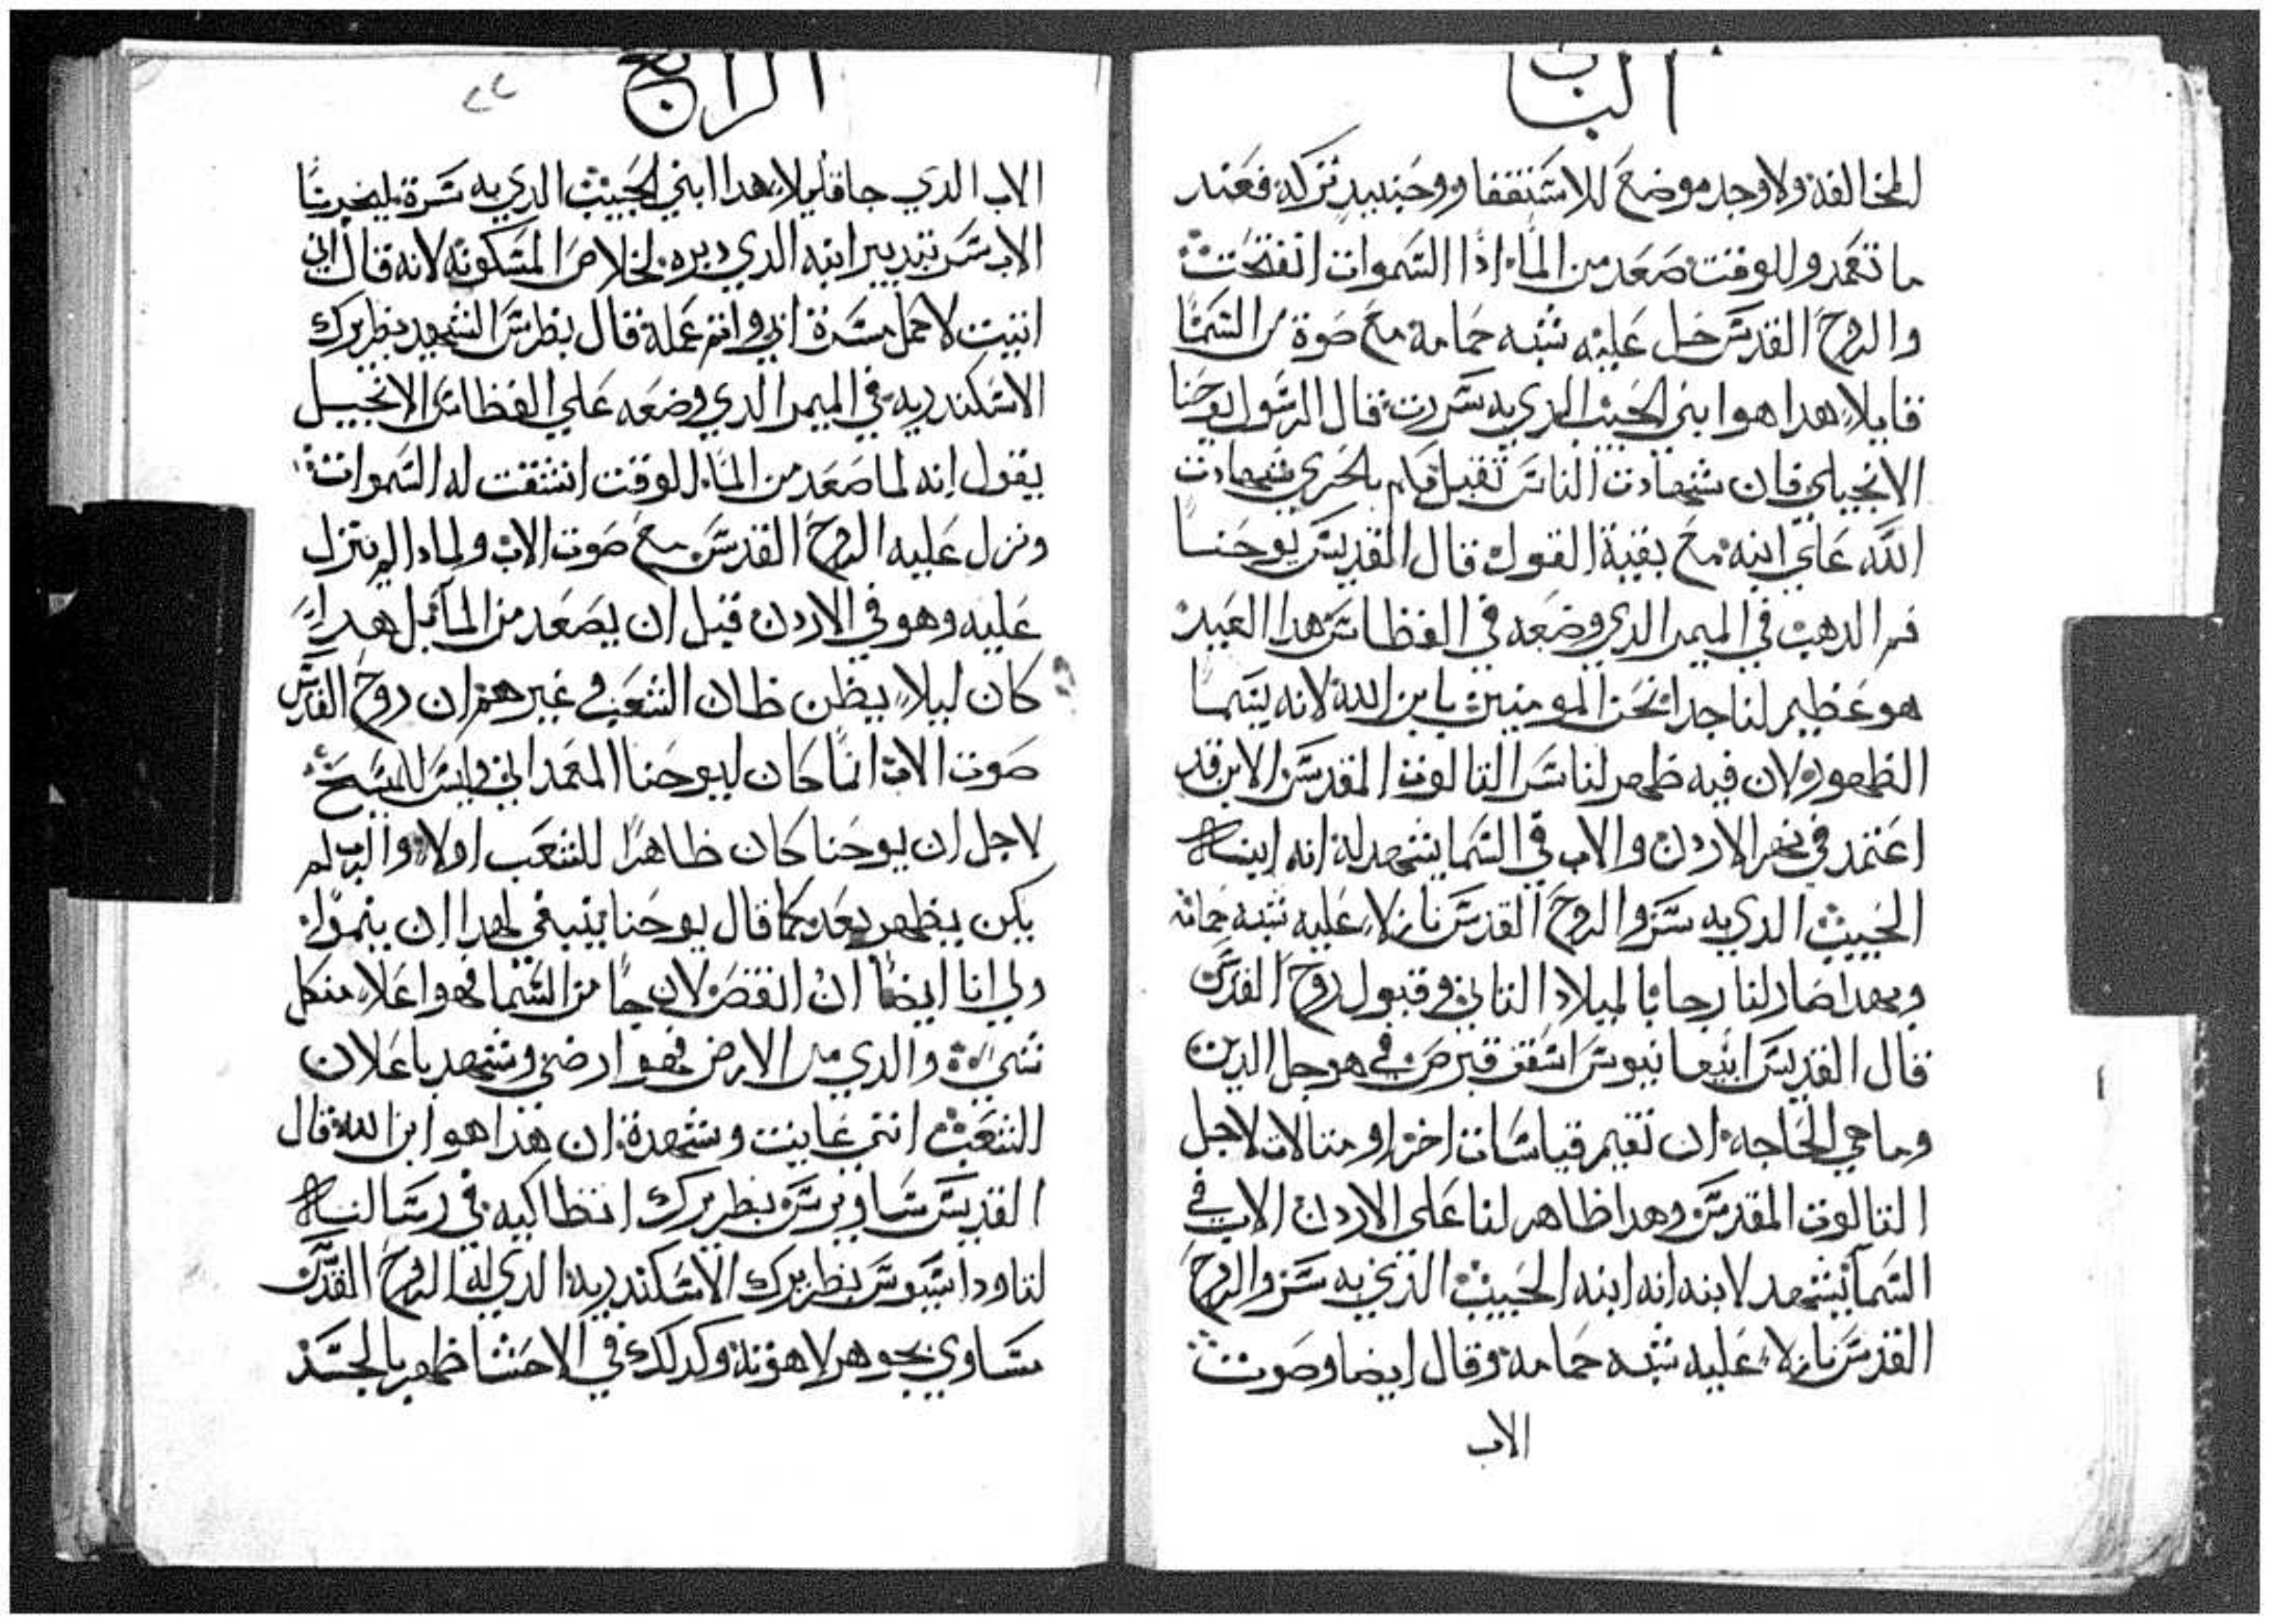 الباب
المخالفه ولا وجد موضع للاستنقفا و وحينيد تركه فعند
ما تعمد وللوقت صعد من الما اذا السموات انفتحت
والروح القدس حل عليه شبه حمامه مع صوة من السما
قايلا هدا هو ابني الحبيب الدي به سررت قال الرسول يوحنا
الانجيلي فان شهادت الناس تقبل فكم بالحري شهادت
الله علي ابنه مع بقية القول قال القديس يوحنا
فم الدهب في الميمر الدي وضعه في الغطاس هدا العيد
هو عظيم لنا جدا نحن المومنين بابن الله لانه يسما
الظهور لان فيه ظهر لنا سر التالوت المقدس الابن قد
اعتمد في نهر الاردن والاب في السما يشهد له انه ابنه
الحبيب الدي به سر والروح القدس نازلا عليه شبه حمامه
وبهدا صار لنا رجا بالميلاد التاني وقبول روح القدس
قال القديس ابيفانيوس اسقف قبرص في هو جل الدين
وما هي الحاجه ان تقيم قياسات اخر او متالات لاجل
التالوت المقدس وهدا ظاهر لنا على الاردن الاب في
السما يشهد لابنه انه ابنه الحبيب الذي به سر والروح
القدس نازلا عليه شبه حمامه وقال ايضا وصوت
الاب
الرابع
٢٢
الاب الدي جا قايلا هدا ابني الحبيب الدي به سرة ليخبرنا
الاب سر بتدبير ابنه الدي دبره لخلاص المسكونه لانه قال اني
اتيت لاعمل مسرة ابي واتم عمله قال بطرس الشهيد بطريرك
الاسكندريه في الميمر الدي وضعه علي الغطاس الانجيل
يقول انه لما صعد من الما للوقت انشقت له السموات
ونزل عليه الروح القدس مع صوت الاب ولمادا لم ينزل
عليه وهو في الاردن قبل ان يصعد من الما بل هدا
كان ليلا يظن ظان الشعب في غيرهم ان روح القدس
صوت الاب انما كان ليوحنا المعمداني وليس للمسيح
لاجل ان يوحنا كان ظاهرا للشعب اولا والرب لم
يكن يظهر بعد كما قال يوحنا ينبغي لهدا ان ينموا
ولي انا ايضا ان انقص لان جا من السما فهو اعلا من كل
شي والدي من الارض فهو ارضي وشهد باعلان
الشعب انني عاينت وشهدة ان هذا هو ابن الله قال
القديس ساويرس بطريرك انطاكيه في رسالته
لتاوداسيوس بطريرك الاسكندريه الدي له الروح القدس
مساوي بجوهر لاهوته وكدلك في الاحشا ظهر بالجسد